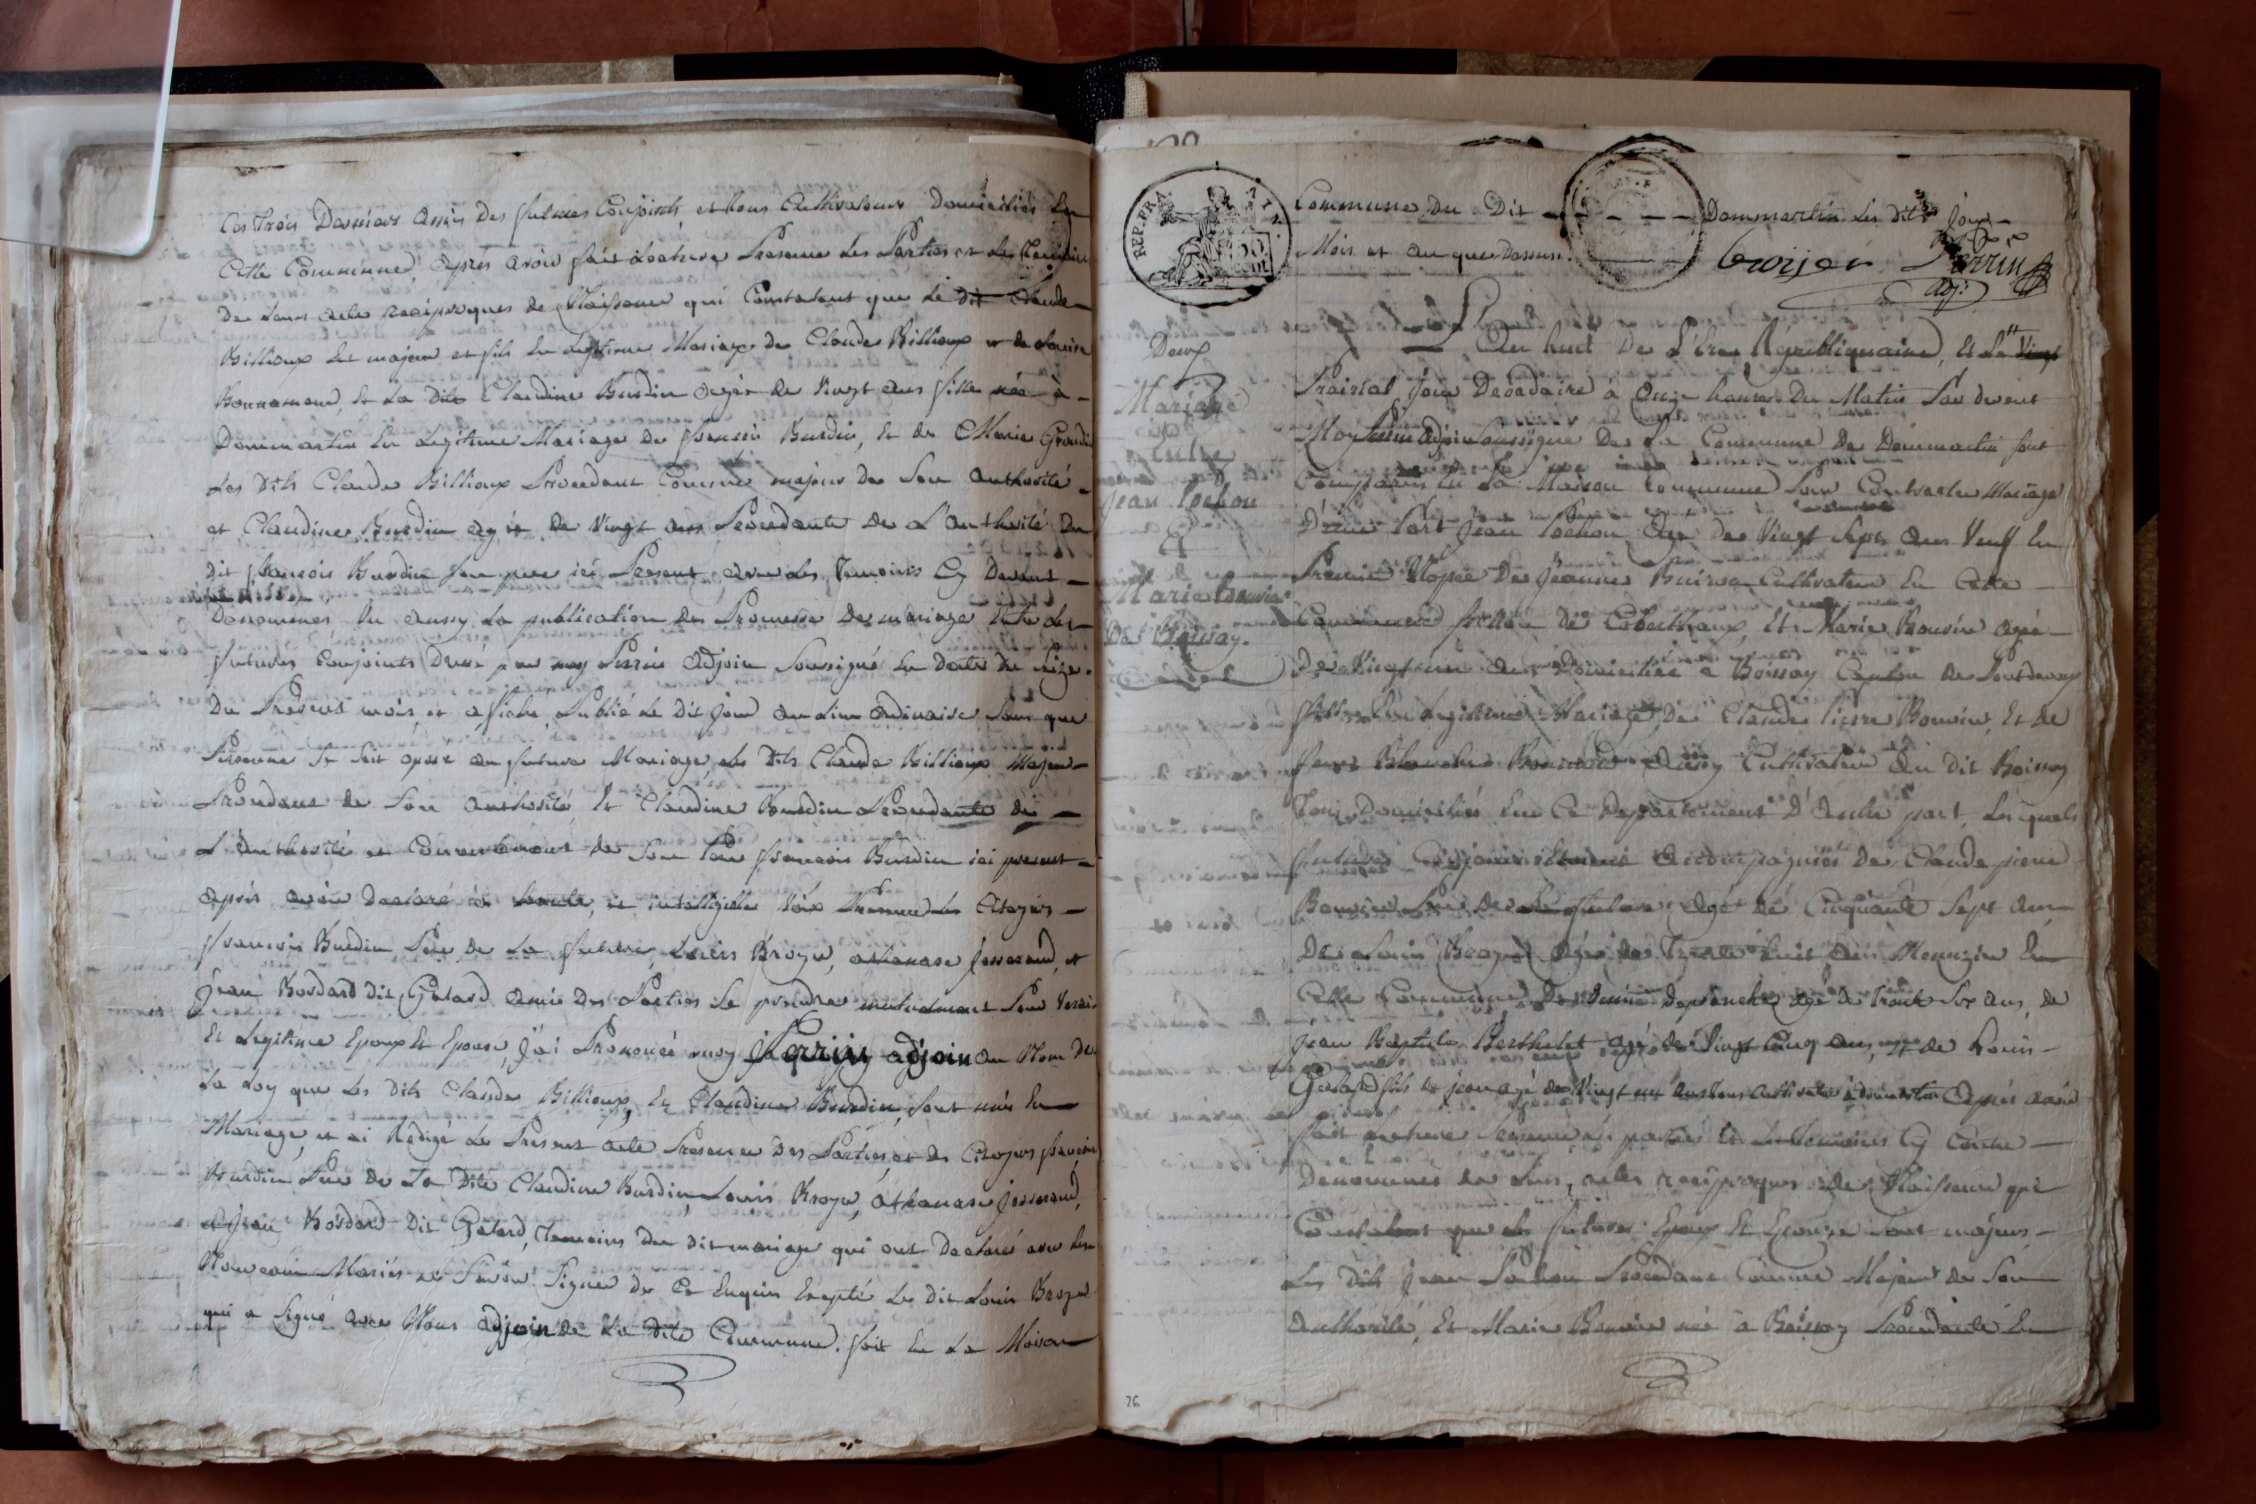 Ces trois Derniers amis des futures Conjoints et tous Cultivateurs Domiciliés En
Cette Commune, après avoir fait lecture Presence des Parties et des Temoins
De Leurs actes reciproques de Naissance qui Constatent que Le dit Claude
Billioux Est majeur et fils En Legitime Mariage de Claude Billioux et de Louise
Bonnamour, Et La Dite Claudine Burdin agée de Vingt ans fille née à
Dommartin En Legitime Mariage De francois Burdin, Et de Marie
Les Dits Claude Billioux Procedant Comme majeur de Son authorité
et Claudine Burdin agée de Vingt ans Procedante de L'authorité Du
dit francois Burdin Son pere ici Present, avec les Temoins Cy Devant
Denommes Vu aussy La publication des Promesse de mariage Entre les
futures Conjoints Dressé par moy Perrin adjoin Soussigné En Date du seize
Du Present mois, et afiche Publié Le dit jour au Lieu ordinaire Sans que
Personne Se Soit oposé au future Mariage, Les Dits Claude Billioux Majeur
Procedant de Son authorité, Et Claudine Burdin Procedante de
L'authorité et Consentement de Son Pere francois Burdin ici present
après avoir Declaré à haute, et intelligible Voix Presence des Citoyens
francois Burdin Pere de La future, Louis Broyer, athanase Josserand, et
Jean Bordard dit Galard amis Des Parties Se prendre mutuelement Pour Vrais
Et Legitime Epoux Et Epouse, J'ai Prononcé moy Perrin adjoin au Nom De
La Loy que Les Dits Claude Billioux, Et Claudine Burdin, Sont unis En
Mariage, et ai Redigé Le Present acte Presence Des Parties, et des Citoyens francois
Burdin Pere de La Dite Claudine Burdin, Louis Broyer, athanase Josserand,
et Jean Bordard Dit Galard, Temoins Du dit mariage qui ont Declaré avec Les
Nouveau Mariés ne Savoir Signer De Ce Enquis Excepté Le Dit Louis Broyer
qui a Signé avec Nous adjoin de La Dite Commune. fait En La Maison
REP. FRA.
Commune Du Dit Dommartin Les dits Jour
Mois et an que Dessus.
broyer Perrin
adj:
Deux
Mariage
Entre
Jean Pochon
Et
Marie Bouvier
De Boissey.
L'An huit De L'Ere Républiquaine, Et Le Vingt
Prairial Jour Decadaire à Onze heures Du Matin Par devant
Moy Perrin adjoin Soussigné De La Commune De Dommartin Sont
Comparus En La Maison Commune Pour Contracter Mariage
D'une Part Jean Pochon agé de Vingt Sept ans Veuf En
Premiere Nopce De Jeanne Cultivateur En Cette
Commune Et Marie Bouvier agée
De Vingt un ans Domiciliée a Boissey Canton de Pontdevaux
fille En Legitime Mariage De Claude pierre Bouvier, Et de
aussy Cultivateur au Dit Boissey
Tous Domiciliés En Ce Departement D'autre part, Lesquels
futures Conjoints accompagnés De Claude pierre
Bouvier Pere de La future agé de Cinquante Sept ans
De Louis Broyer agé de Trente huit ans En
Cette Commune, De Denis Deplanche agé de Trente Six ans, de
Jean Baptiste Berthelet agé de Vingt Cinq ans, et de Louis
Galard fils de jean agé de Vingt ans tous Cultivateur à Dommartin Après avoir
fait lecture Presence des parties Et des Temoins Cy Contre
Denommes de Leurs actes reciproques de Naissance qui
Constatent que les futures Epoux Et Epouse Sont majeurs
Les Dits Jean Pochon Procedant Comme Majeur de Son
authorité, Et Marie Bouvier née à Boissey Procedante En
76